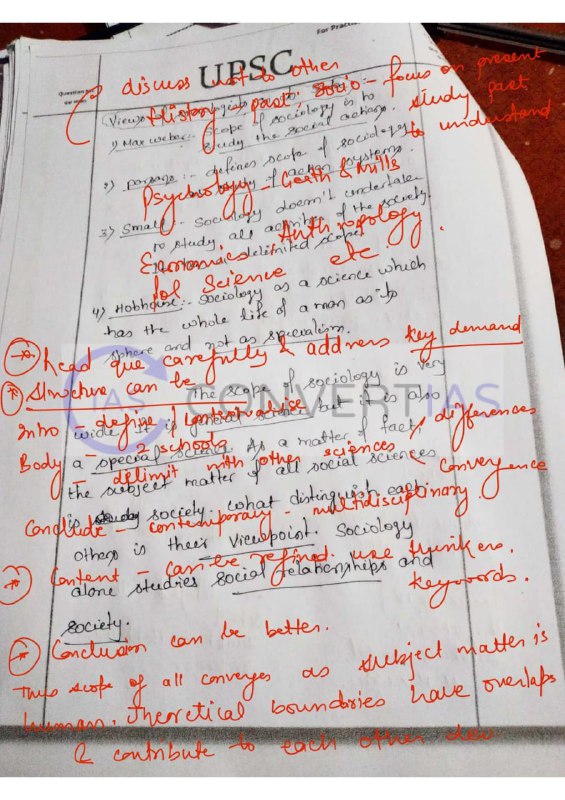 For Practi
UPSC
discuss wrt to other
History - past; Socio - focus on present
study past
to understand
Views
1) Max Weber:- Scope of sociology is to
study the social actions.
2) Parsons:- defines scope of sociology
of action systems.
Psychology - Gerth & Mills
3) Small - Sociology doesn't undertake
to study all activities of the society
delimited scope
Economics, Anthropology,
Pol Science etc
4) Hobhouse:- Sociology as a science which
has the whole life of a man as its
sphere and not as specialism.
Read que carefully & address key demand
Structure can be
The scope of sociology is very
wide. It is general science but it is also
Intro - define / contextualize
a special science. As a matter of fact,
Body - 2 schools
- delimit with other sciences < differences
convergence
the subject matter of all social sciences
is society. What distinguish each
Conclude - contemporary - multidisciplinary
others is their viewpoint. Sociology
Content - can be refined. use thinkers,
keywords.
alone studies social relationships and
society.
IAS CONVERTIAS
Conclusion can be better.
Thus scope of all converges as subject matter is
human. Theoretical boundries have overlaps
& contribute to each other dev